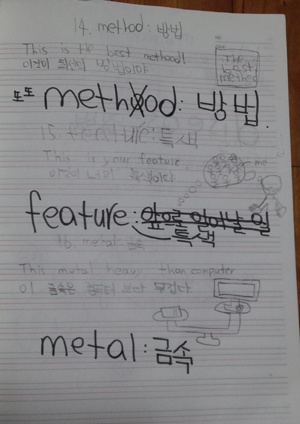 14. method: 방법
This is the best method!
이것이 최선의 방법이야
The best method
또또 method: 방법.
15. feature: 특색
This is your feature.
이것이 너의 특색이다
me
feature: 앞으로 일어날 일
특색
16. metal: 금속
This metal heavy than computer
이 금속은 컴퓨터 보다 무겁다
metal: 금속